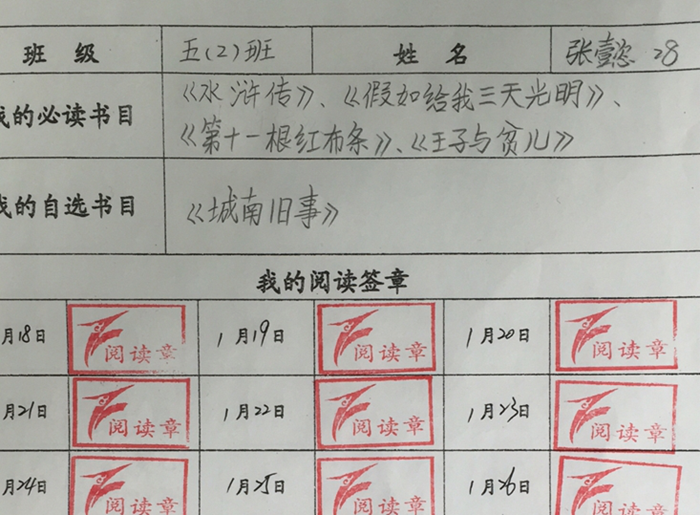 班 级 五(2)班 姓 名 张懿 28
我的必读书目 《水浒传》、《假如给我三天光明》、
《第十一根红布条》、《王子与贫儿》
我的自选书目 《城南旧事》
我的阅读签章
月18日 阅读章 1月19日 阅读章 1月20日 阅读章
月21日 阅读章 1月22日 阅读章 1月23日 阅读章
月24日 阅读章 1月25日 阅读章 1月26日 阅读章